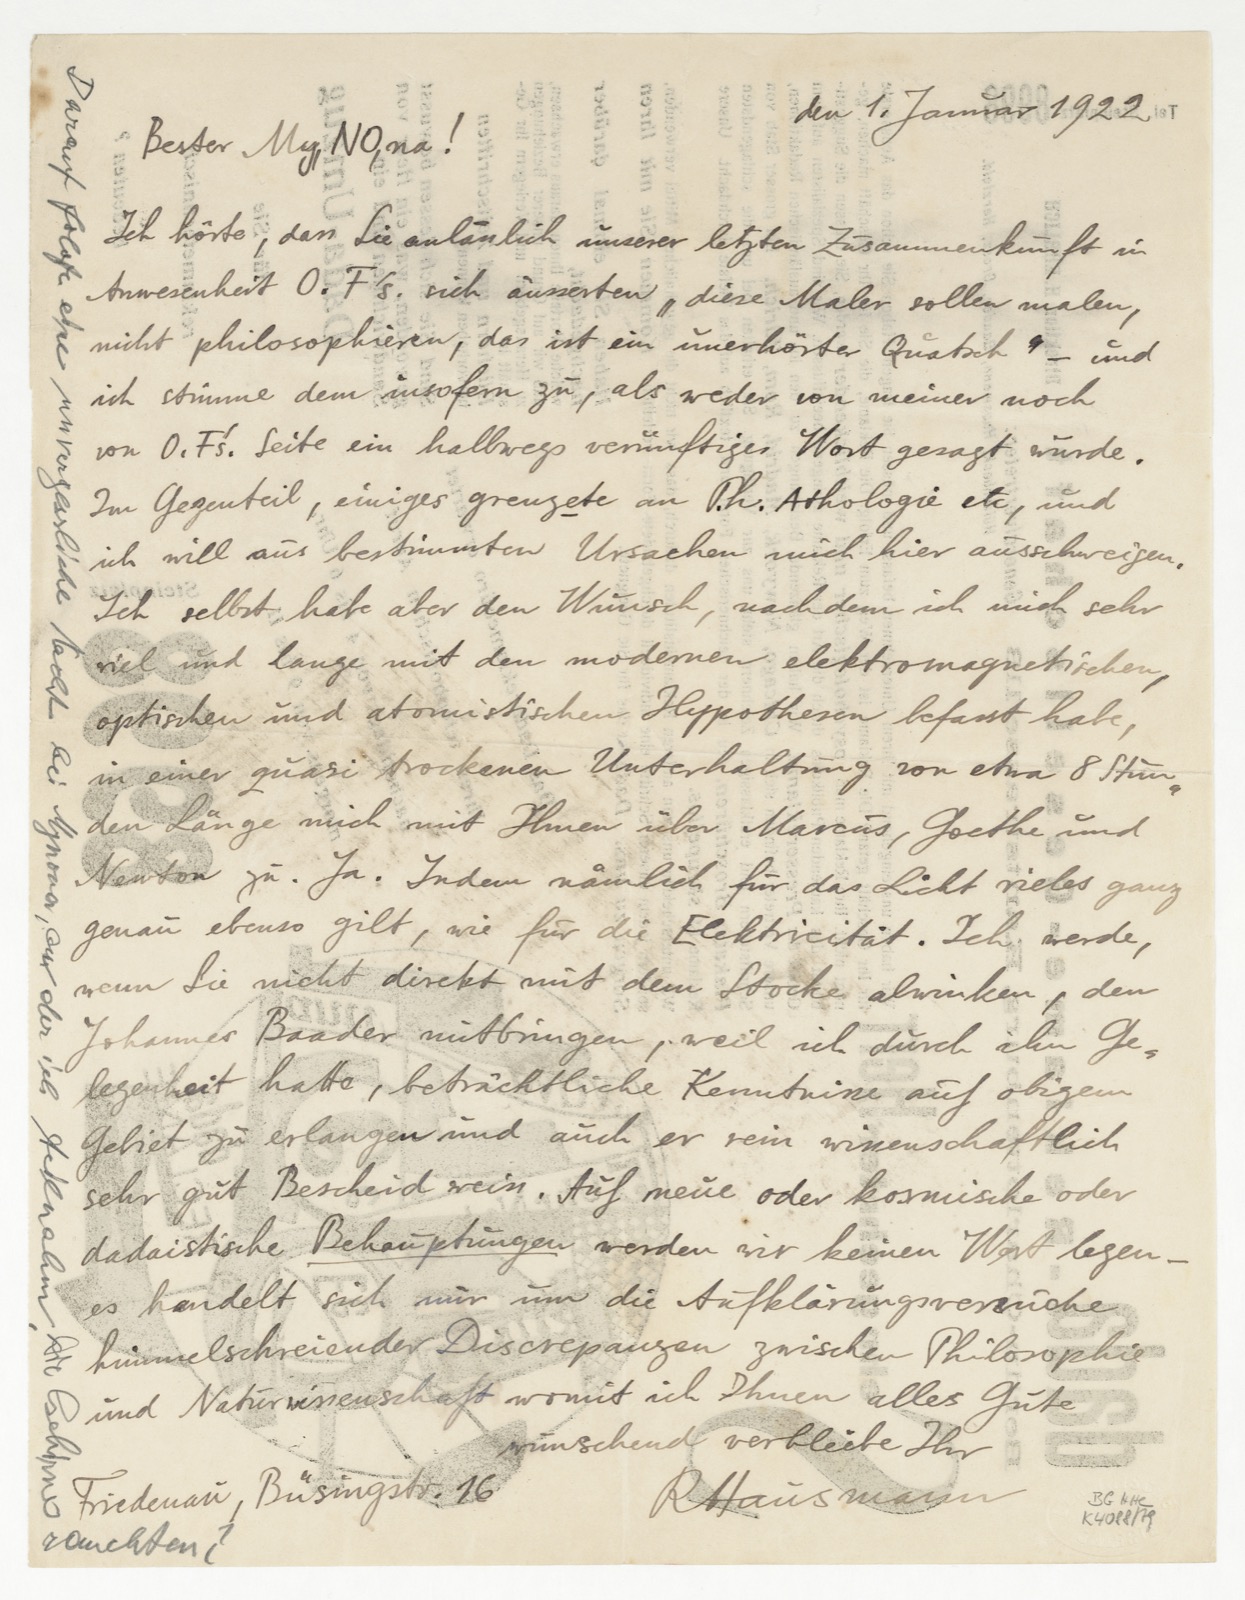 den 1. Januar 1922
Bester My, NO, na!
Ich hörte, dass Sie anlässlich unserer letzten Zusammenkunft in
Anwesenheit O. F's. sich äusserten „diese Maler sollen malen,
nicht philosophieren, das ist ein unerhörter Quatsch" – und
ich stimme dem insofern zu, als weder von meiner noch
von O. F's. Seite ein halbwegs verünftiges Wort gesagt wurde.
Im Gegenteil, einiges grenzete an P.h. Athologie etc, und
ich will aus bestimmten Ursachen mich hier ausschweigen.
Ich selbst habe aber den Wunsch, nachdem ich mich sehr
viel und lange mit den modernen elektromagnetischen,
optischen und atomistischen Hypothesen befasst habe,
in einer quasi trockenen Unterhaltung von etwa 8 Stun-
den Länge mich mit Ihnen über Marcus, Goethe und
Newton zu. Ja. Indem nämlich für das Licht vieles ganz
genau ebenso gilt, wie für die Elektricität. Ich werde,
wenn Sie nicht direkt mit dem Stocke abwinken, den
Johannes Baader mitbringen, weil ich durch ihn Ge-
legenheit hatte, beträchtliche Kenntnisse auf obigem
Gebiet zu erlangen und auch er rein wissenschaftlich
sehr gut Bescheid weiss. Auf neue oder kosmische oder
dadaistische Behauptungen werden wir keinen Wert legen –
es handelt sich nur um die Aufklärungsversuche
himmelschreiender Discrepanzen zwischen Philosophie
und Naturwissenschaft womit ich Ihnen alles Gute
wünschend verbleibe Ihr
RHausmann
Friedenau, Büsingstr. 16
Darauf folgte eine unvergessliche Nacht bei Mynona, an der ich teilnahm, die Gehirne
rauchten!
BG HHC
K 4088/79